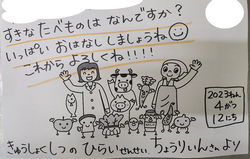 すきな たべものは なんですか？
いっぱい おはなし しましょうね
これから よろしくね!!!!
2023ねん
4がつ
12にち
きゅうしょくしつの ひらいせんせい、ちょうりいんさん より